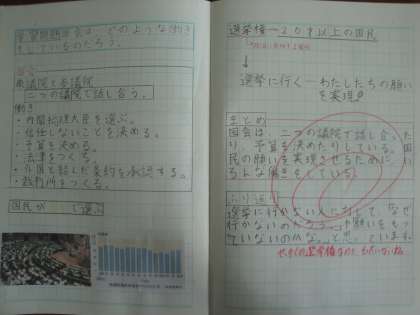 学習問題 国会は、どのような働き
をしているのだろう。
国会
衆議院と参議院
二つの議院で話し合う。
働き
・内閣総理大臣を選ぶ。
・信任しないことを決める。
・予算を決める。
・法律をつくる。
・外国と結んだ条約を承認する。
・裁判所をつくる。
国民が 選ぶ
選挙権→20才以上の国民
選挙に行く→わたしたちの願い
を実現
まとめ
国会は、二つの議院で話し合った
り、予算を決めたりしている。国
民の願いを実現させるために
な働きをしている。
ふり返り
選挙に行かない人に対して、なぜ
行かないのだろう、願いをもっ
ていないのかな、と思っています。
せっかくの選挙権なのに、もったいないね。